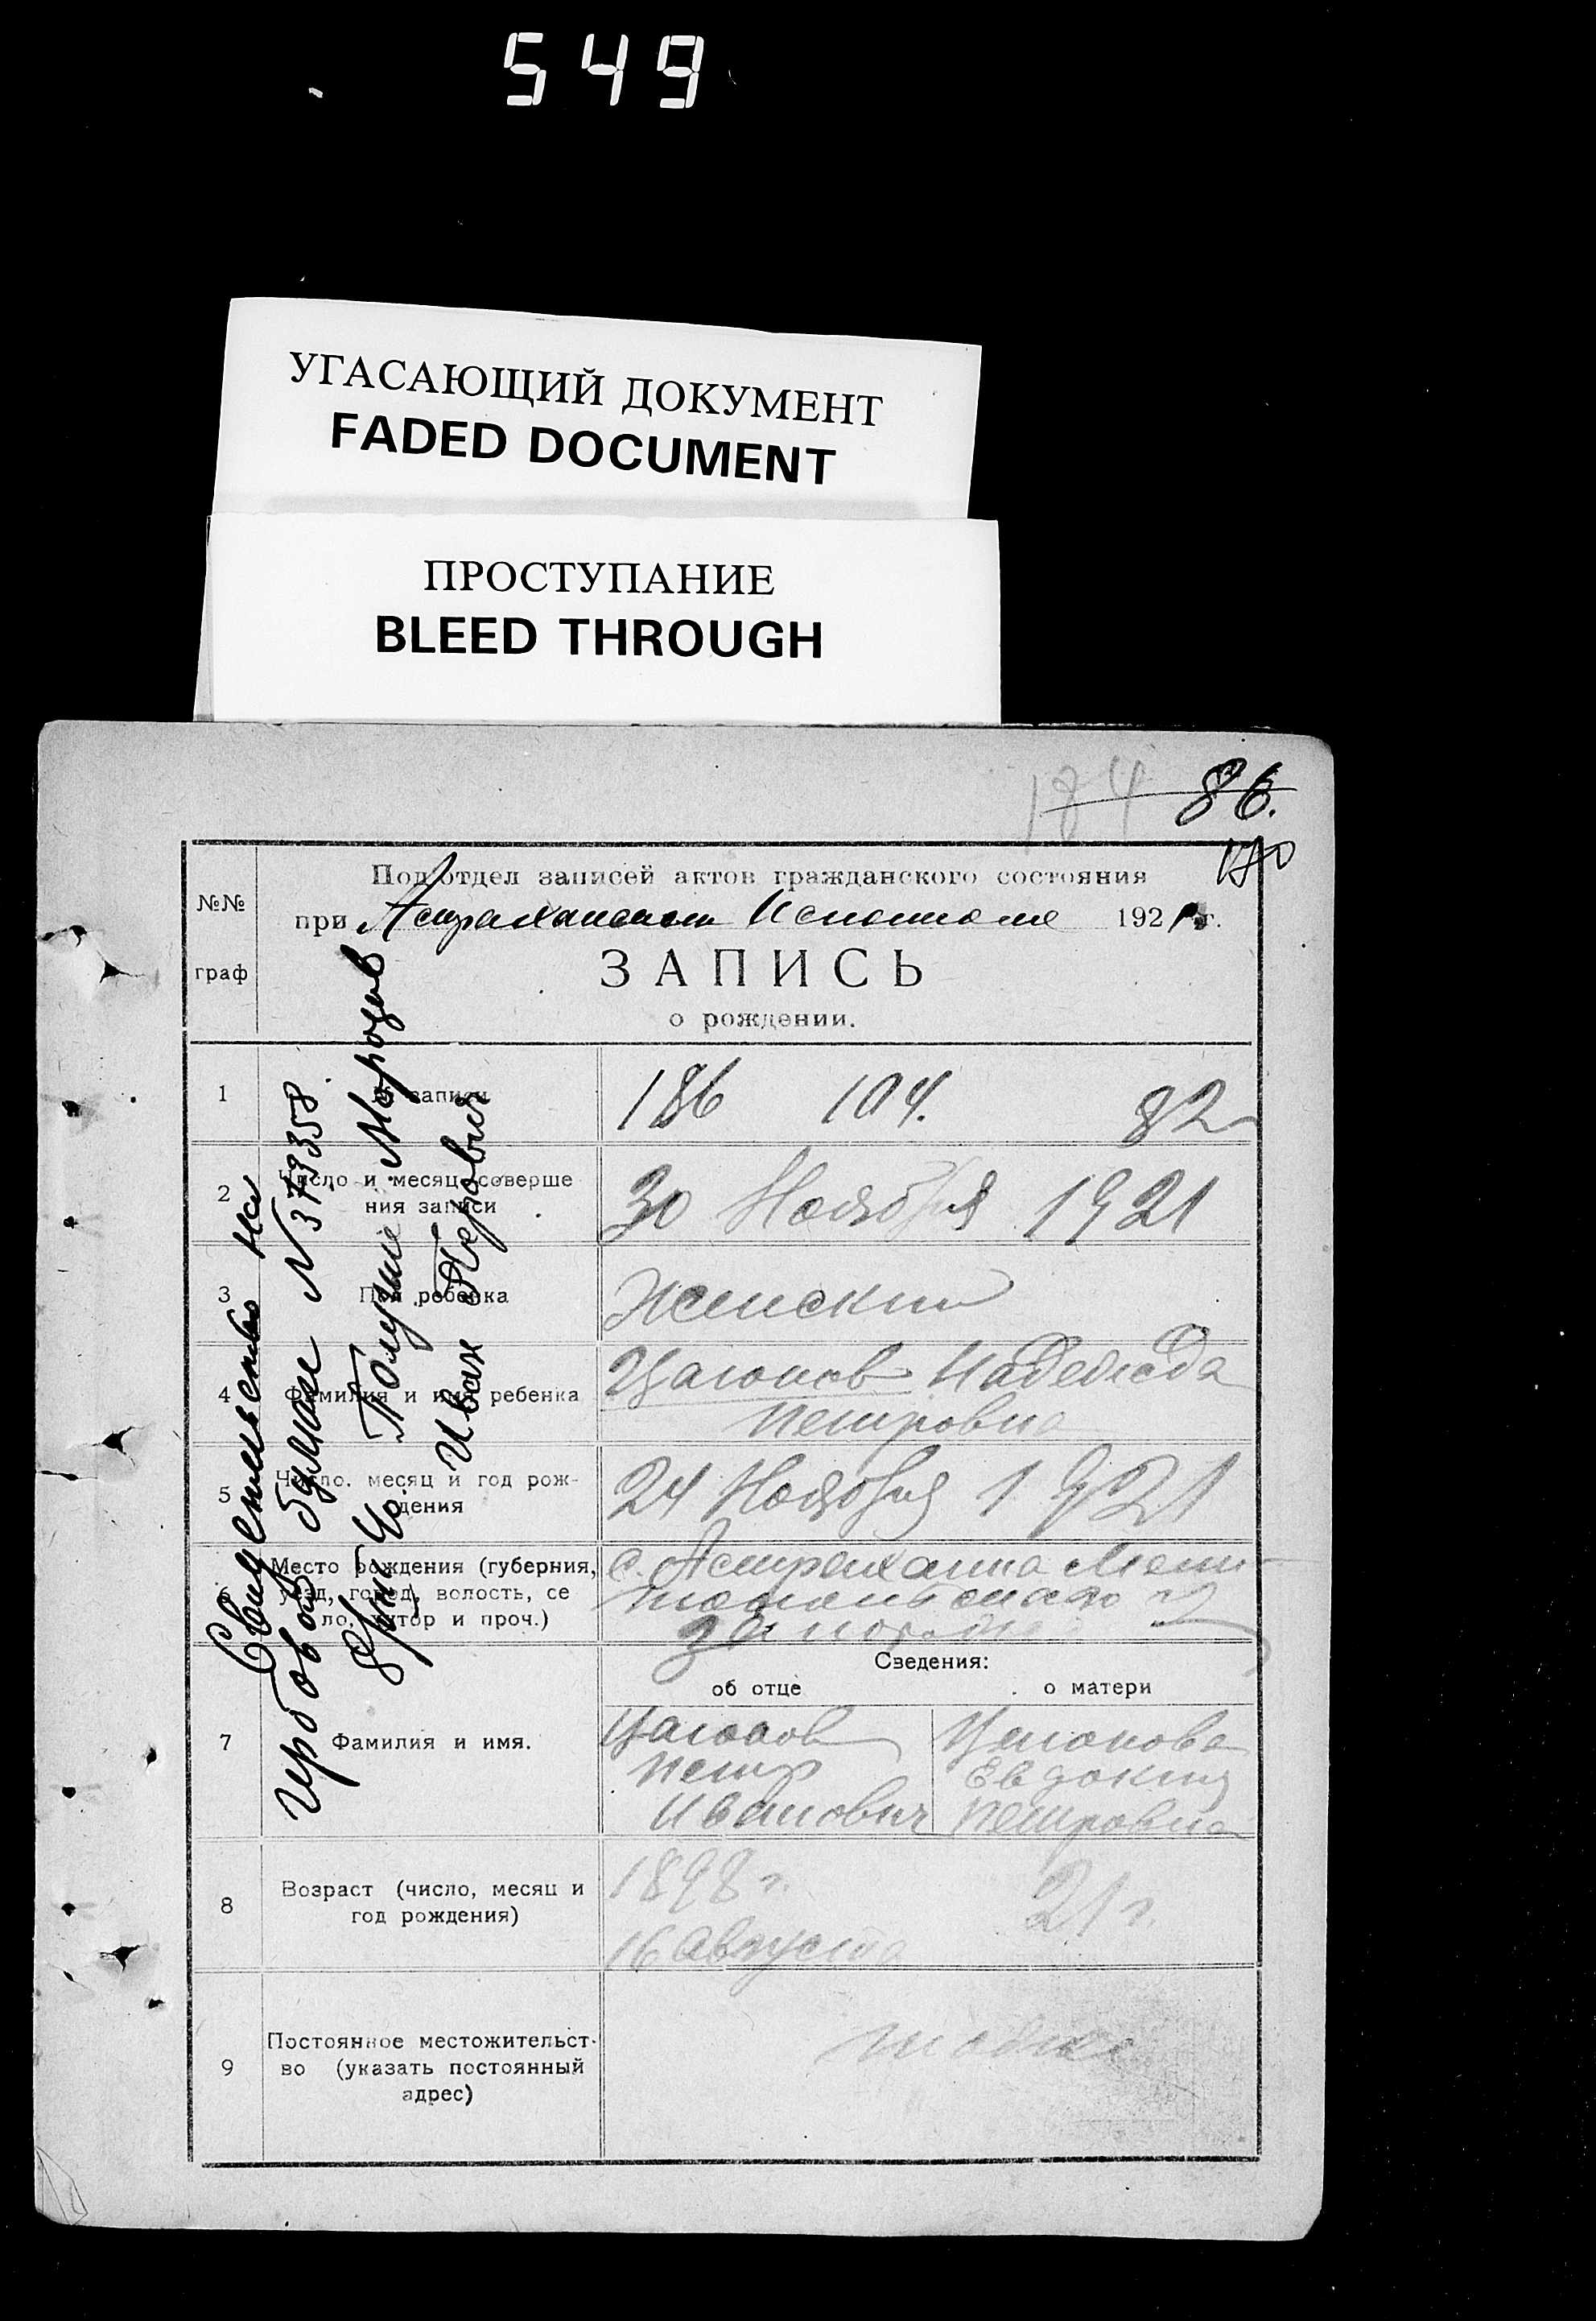 549
УГАСАЮЩИЙ ДОКУМЕНТ
FADED DOCUMENT
ПРОСТУПАНИЕ
BLEED THROUGH
184 86.
170
№№ граф
Под'отдел записей актов гражданского состояния
при Астраханском 1921 г.
ЗАПИСЬ
о рождении.
1 № записи 186 104. 82
2 Число и месяц соверше
ния записи 30 Ноября 1921
3 Пол ребенка Женский
4 Фамилия и имя ребенка Надежда
Петровна
5 Число, месяц и год рож-
дения 24 Ноября 1921
6 Место рождения (губерния,
уезд, город, волость, се
ло, хутор и проч.) с. Астраханка
Сведения:
об отце о матери
7 Фамилия и имя.
Петр Евдокия
Иванович Петровна
8 Возраст (число, месяц и
год рождения) 1898 г. 21 г.
16 Августа
9 Постоянное местожительст-
во (указать постоянный
адрес) тоже
Свидетельство на
гербовой бумаге N 379358
Получил Морозов
Иван